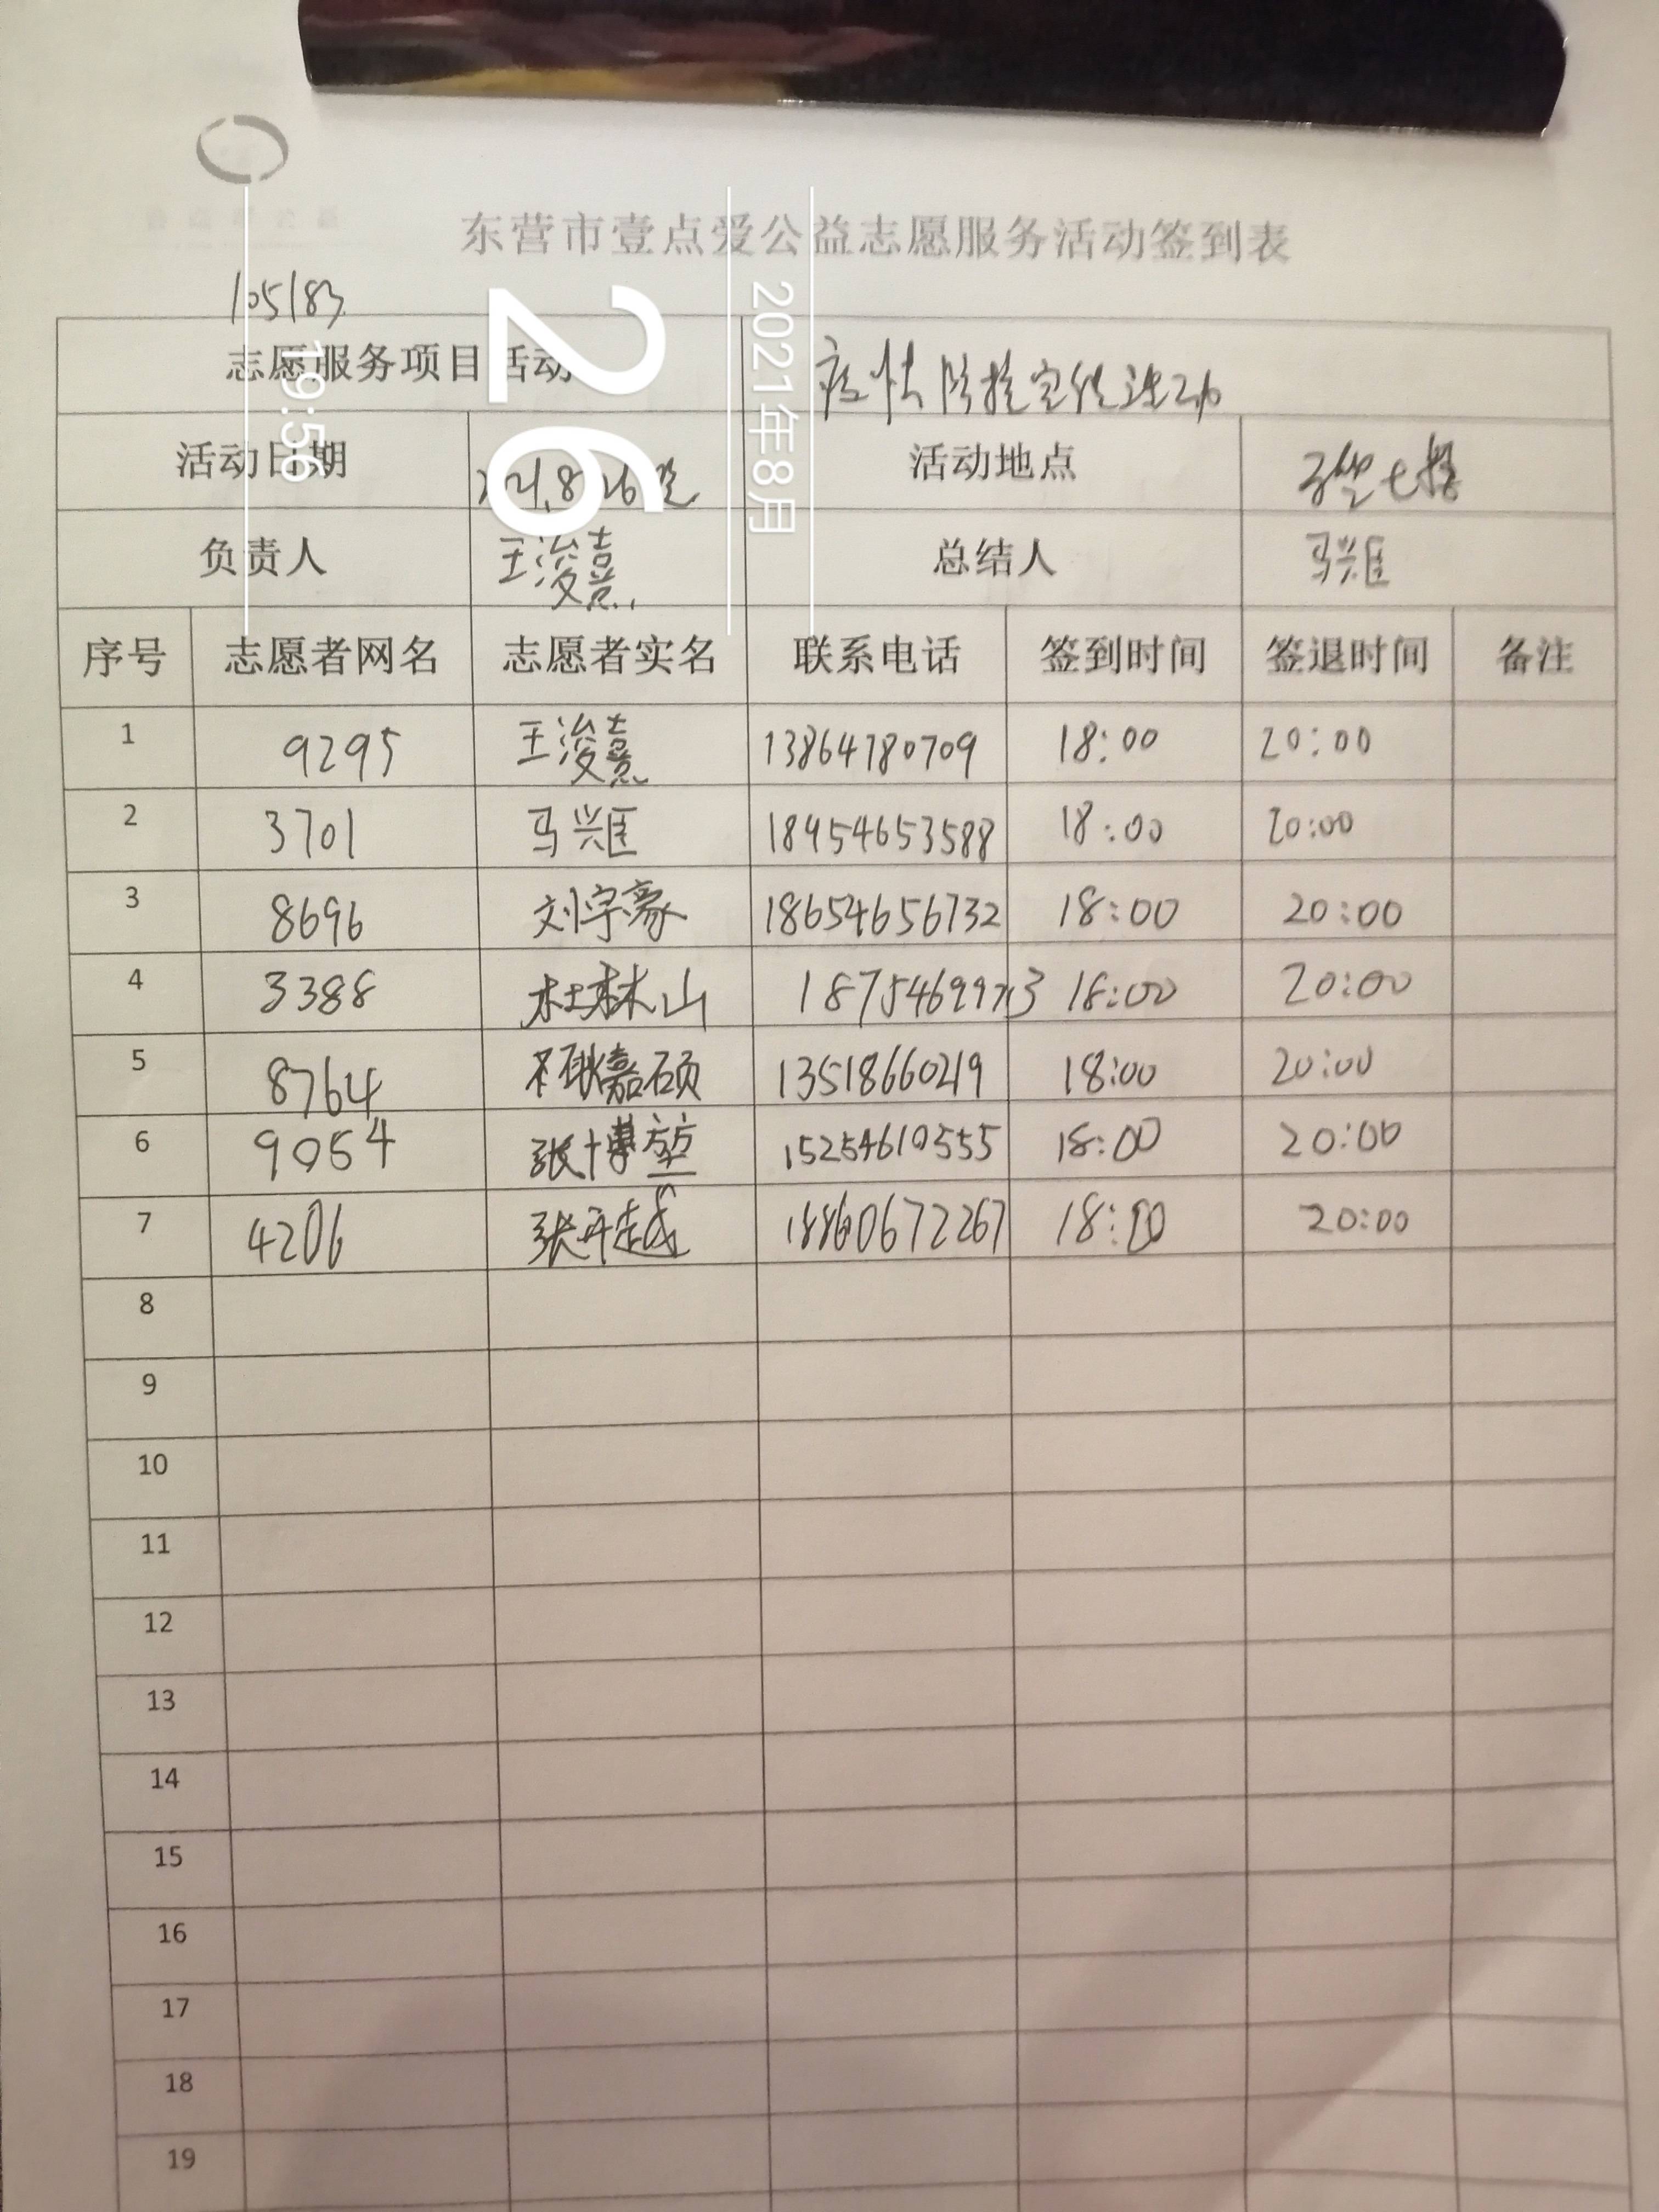 东营市壹点爱公益志愿服务活动签到表
105183
志愿服务项目活动 疫情防控宣传
活动日期 活动地点
负责人 王浚熹 总结人 马兴匡
序号 志愿者网名 志愿者实名 联系电话 签到时间 签退时间 备注
1 9295 王浚熹 13864780709 18:00 20:00
2 3701 马兴匡 18954653588 18:00 20:00
3 8696 刘宇豪 18654656732 18:00 20:00
4 3388 杜林山 18:00 20:00
5 8764 嘉硕 13518660219 18:00 20:00
6 9054 张博堃 15254610555 18:00 20:00
7 4206 张越 18860672267 18:00 20:00
8
9
10
11
12
13
14
15
16
17
18
19
2021年8月
26
19:56